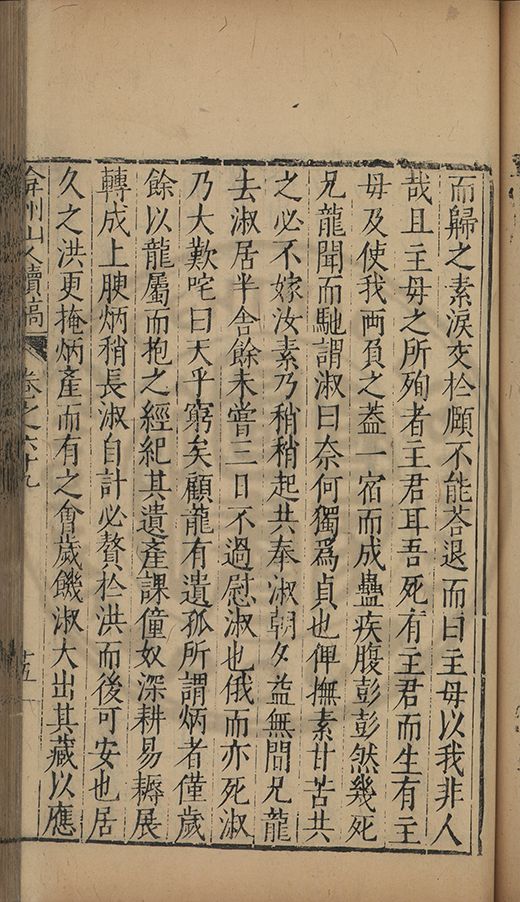 而歸之素淚交於頤不能荅退而曰主母以我非人
哉且主母之所殉者主君耳吾死有主君而生有主
母及使我两負之葢一宿而成蠱疾腹彭彭然幾死
兄龍聞而馳謂淑曰奈何獨爲貞也俾撫素甘苦共
之必不嫁汝素乃稍稍起共奉淑朝夕益無間兄龍
去淑居半舎餘未嘗三日不過慰淑也俄而亦死淑
乃大歎咤曰天乎窮矣顧龍有遺孤所謂炳者僅歲
餘以龍屬而抱之經紀其遺產課僮奴深耕易耨展
轉成上腴炳稍長淑自計必贅於洪而後可安也居
久之洪更掩炳產而有之會歲饑淑大出其藏以應
弇州山人續稿
卷之六十九
十五